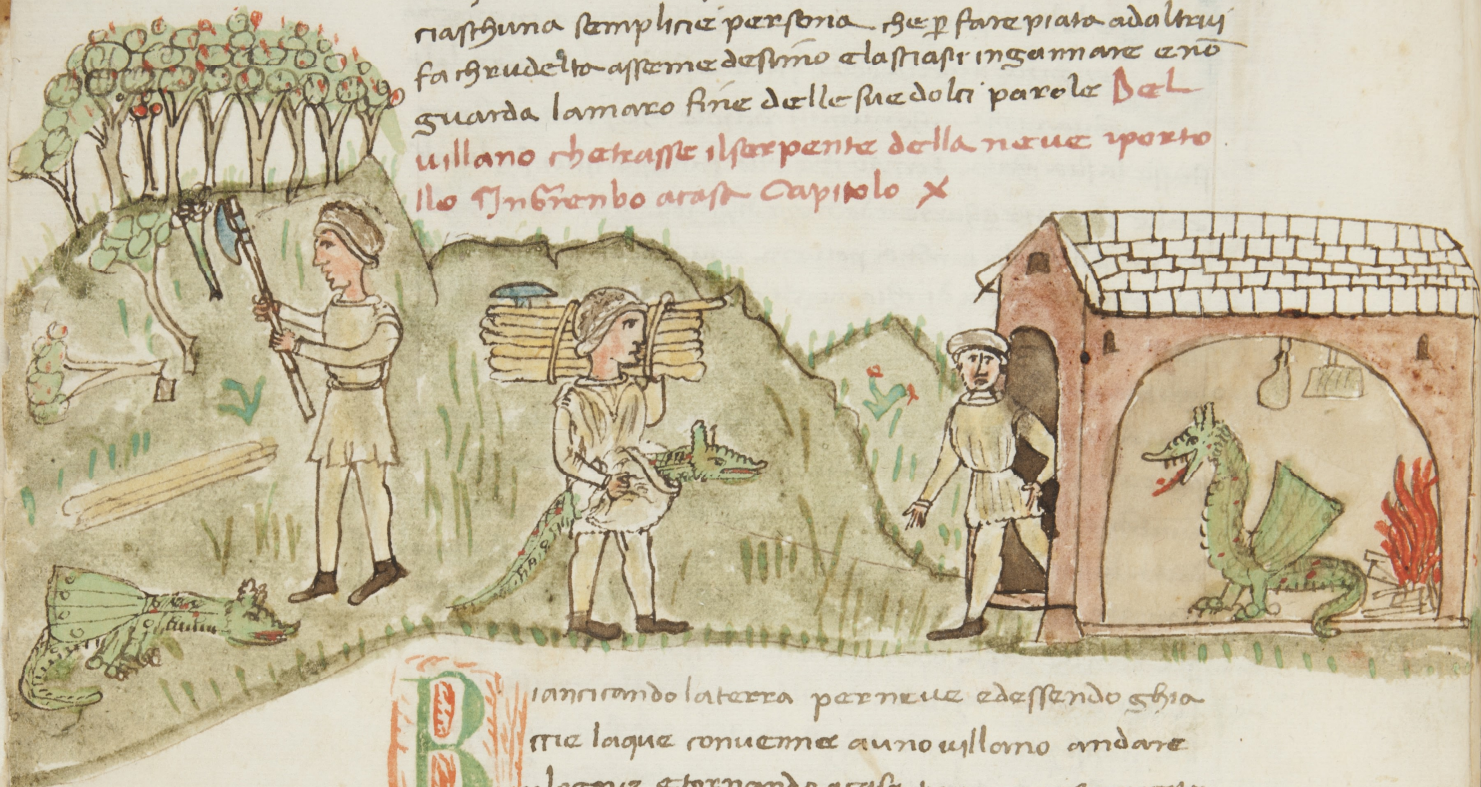 ciaschuna semplicie persona che p̱ fare piata adaltrui
fa chrudelta asseme desimo elasciasi ingannare enō
guarda lamaro fine delle sue dolci parole Del
uillano chetrasse ilserpente della neve iporto
llo Ingrenbo acasa Capitolo x
Biancicando laterra perneve edessendo ghia
ccie laque convenne auno uillano andare